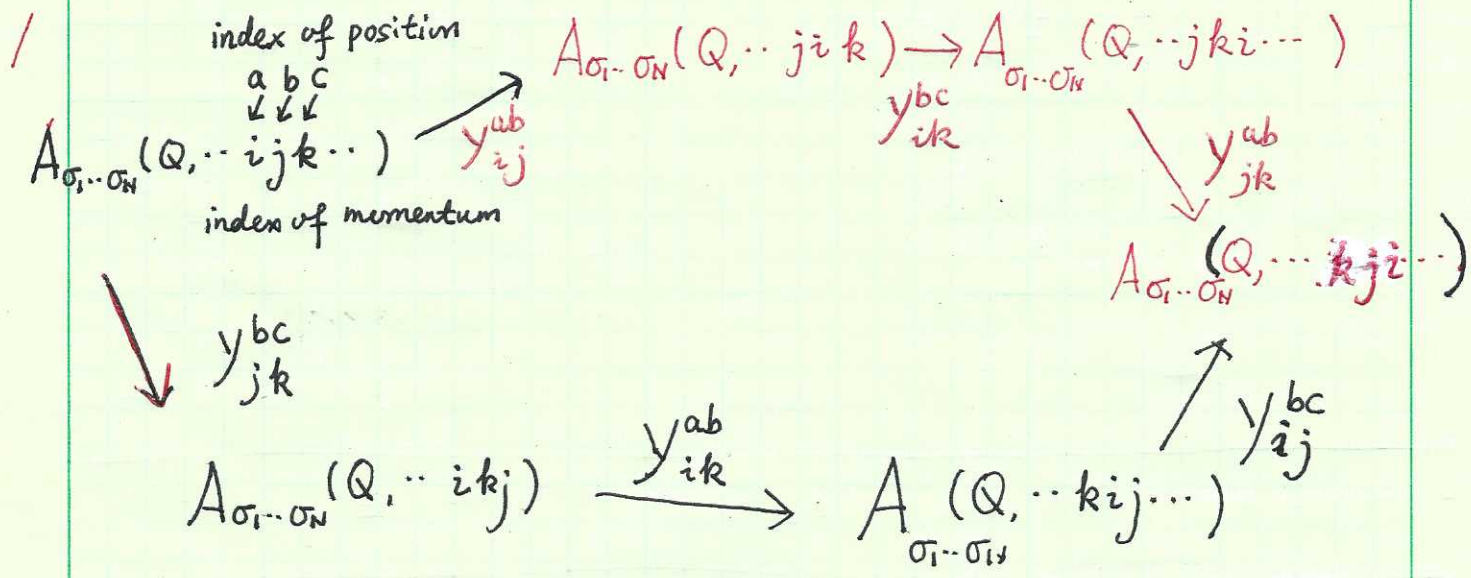 index of position
a b c
A_{σ₁··σ_N}(Q,·· i j k··)
index of momentum
y^{ab}_{ij}
A_{σ₁··σ_N}(Q,·· j i k) → A_{σ₁··σ_N}(Q,··jki···)
y^{bc}_{ik}
y^{ab}_{jk}
A_{σ₁··σ_N}(Q,··· kji··)
y^{bc}_{jk}
y^{ab}_{ik}
y^{bc}_{ij}
A_{σ₁··σ_N}(Q,·· ikj) → A_{σ₁··σ_N}(Q,··kij···)